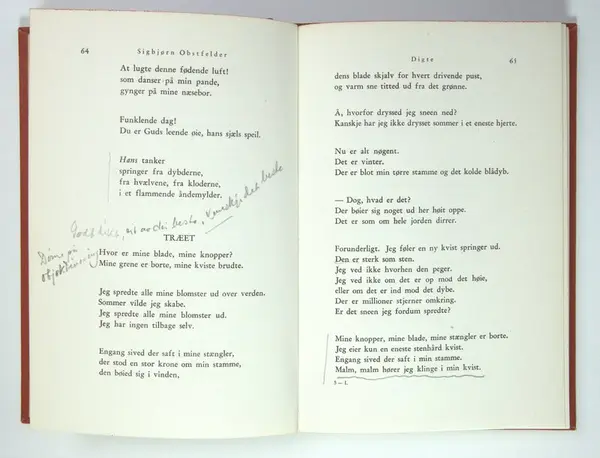 64
Sigbjørn Obstfelder
At lugte denne fødende luft!
som danser på min pande,
gynger på mine næsebor.
Funklende dag!
Du er Guds leende øie, hans sjæls speil.
Hans tanker
springer fra dybderne,
fra hvælvene, fra kloderne,
i et flammende åndemylder.
TRÆET
Hvor er mine blade, mine knopper?
Mine grene er borte, mine kviste brudte.
Jeg spredte alle mine blomster ud over verden.
Sommer vilde jeg skabe.
Jeg spredte alle mine blomster ud.
Jeg har ingen tilbage selv.
Engang sived der saft i mine stængler,
der stod en stor krone om min stamme,
den bøied sig i vinden,
Digte
65
dens blade skjalv for hvert drivende pust,
og varm sne titted ud fra det grønne.
Å, hvorfor dryssed jeg sneen ned?
Kanskje har jeg ikke drysset sommer i et eneste hjerte.
Nu er alt nøgent.
Det er vinter.
Der er blot min tørre stamme og det kolde blådyb.
— Dog, hvad er det?
Der bøier sig noget ud her høit oppe.
Det er som om hele jorden dirrer.
Forunderligt. Jeg føler en ny kvist springer ud.
Den er sterk som sten.
Jeg ved ikke hvorhen den peger.
Jeg ved ikke om det er op mod det høie,
eller om det er ind mod det dybe.
Der er millioner stjerner omkring.
Er det sneen jeg fordum spredte?
Mine knopper, mine blade, mine stængler er borte.
Jeg eier kun en eneste stenhård kvist.
Engang sived der saft i mine stamme.
Malm, malm hører jeg klinge i min kvist.
5 — I.